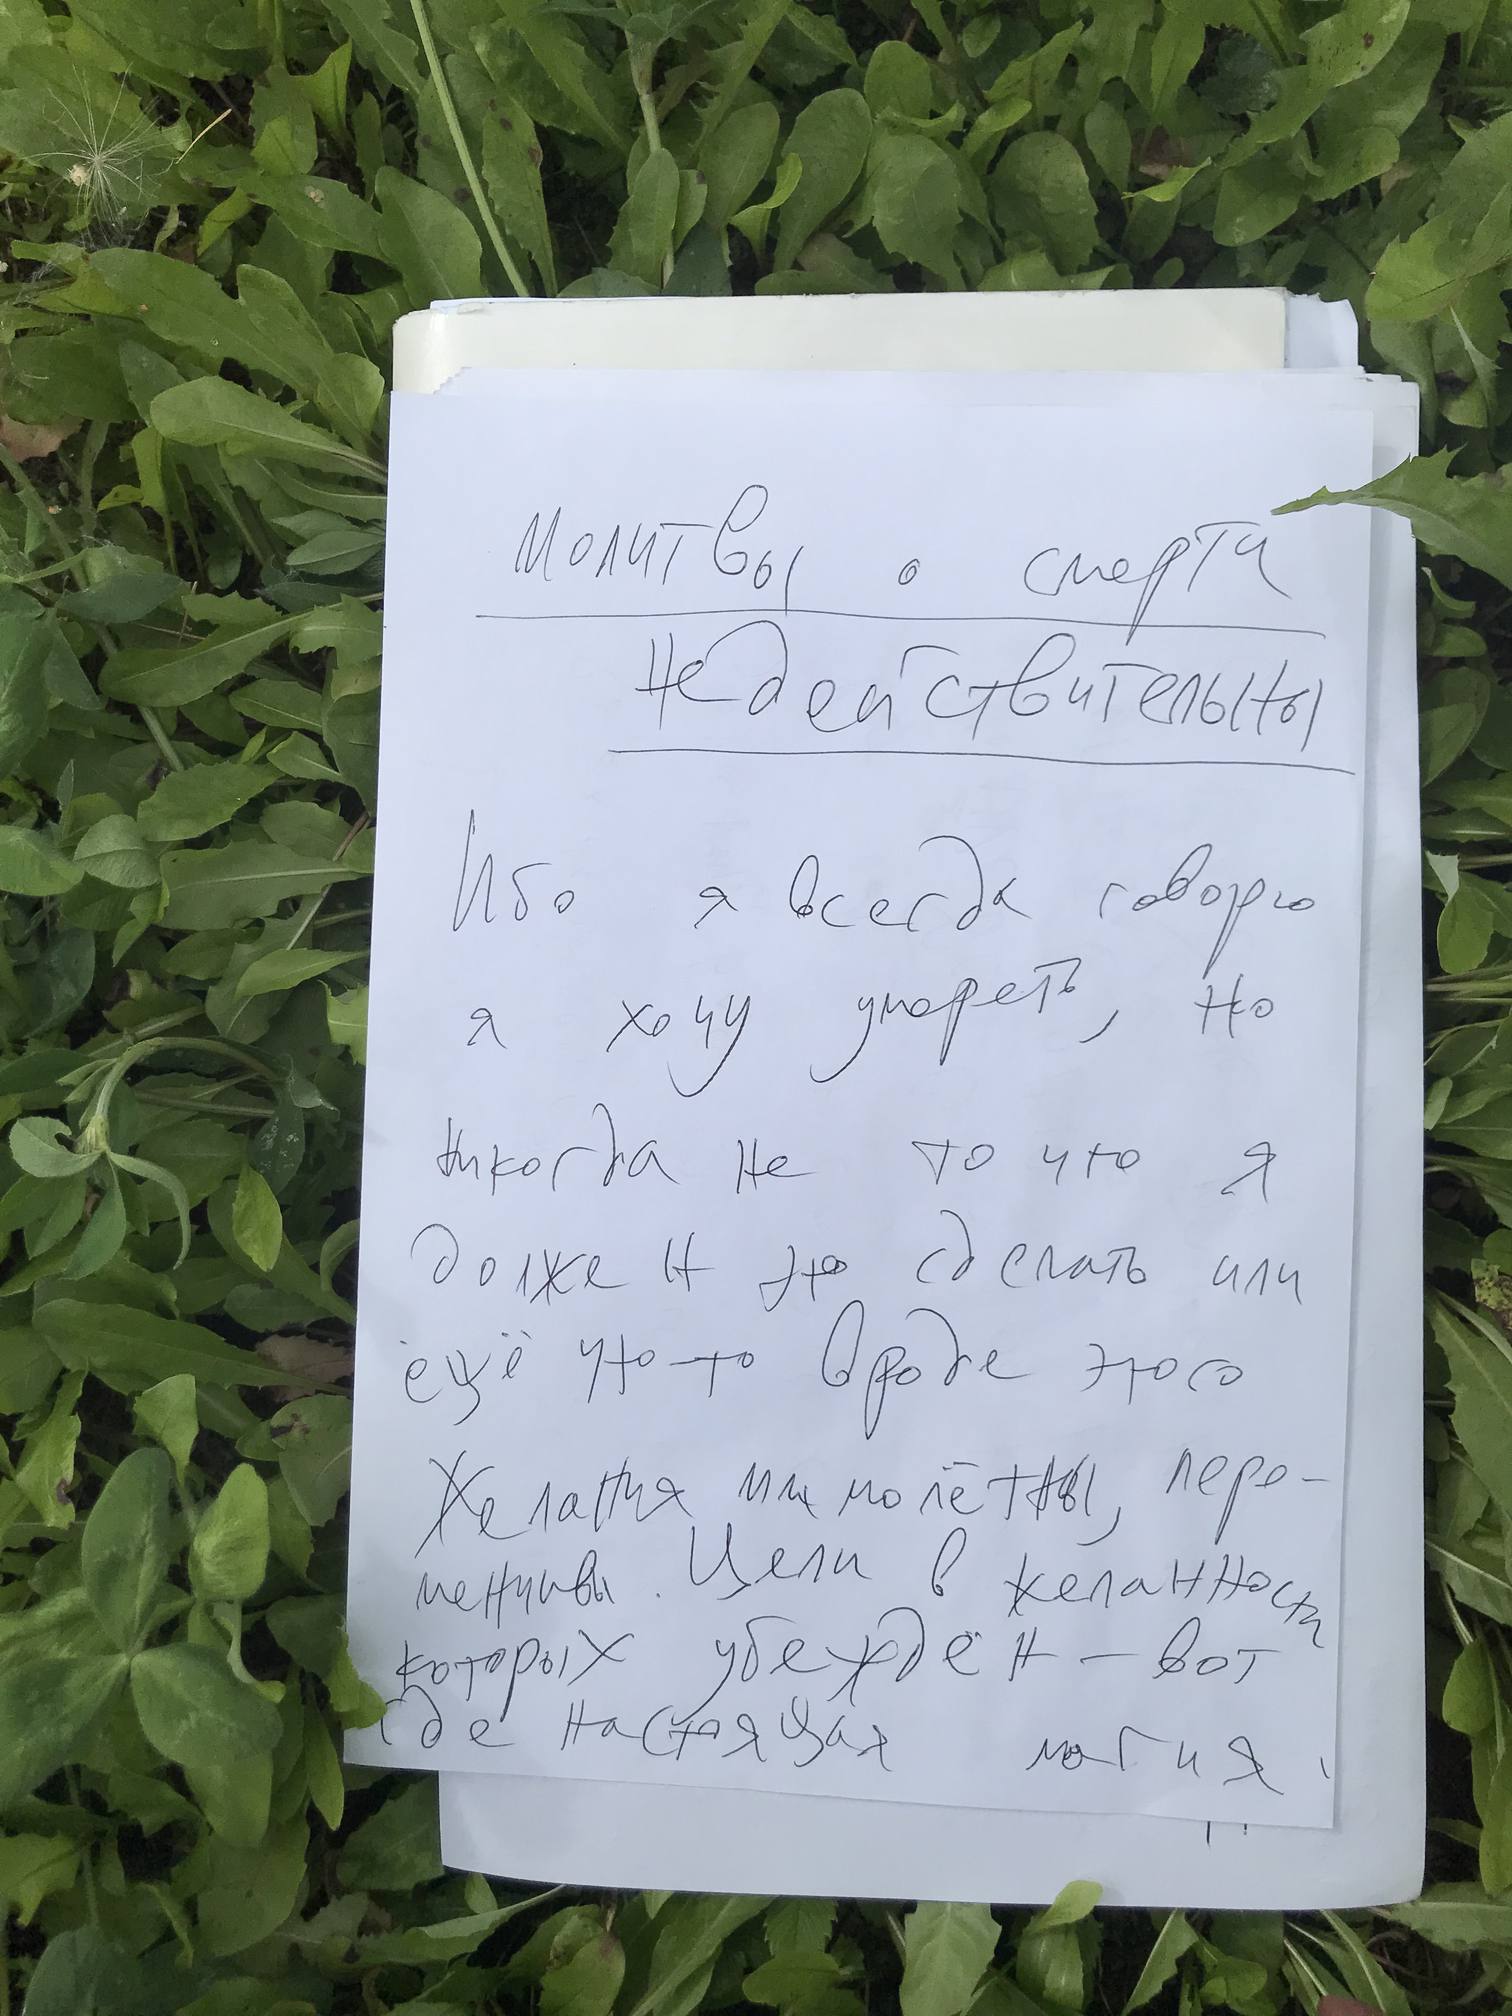 Молитвы о смерти
недействительны
Ибо я всегда говорю
я хочу умереть, но
никогда не то что я
должен это сделать или
ещё что-то вроде этого
Желания мимолётны, пере-
менчивы. Цели в желанности
которых убеждён — вот
где настоящая магия.